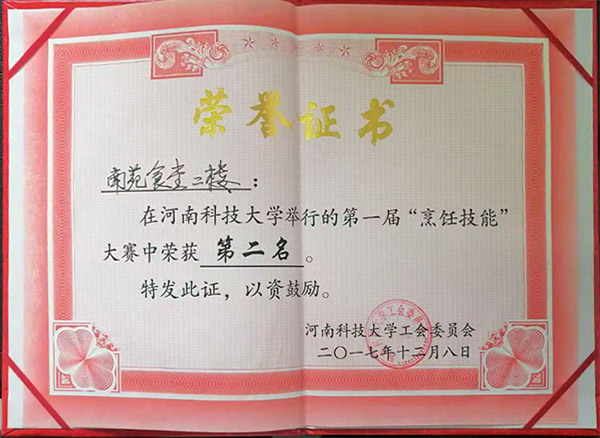 荣誉证书
南苑食堂二楼：
在河南科技大学举行的第一届“烹饪技能”
大赛中荣获 第二名 。
特发此证，以资鼓励。
河南科技大学工会委员会
二〇一七年十二月八日